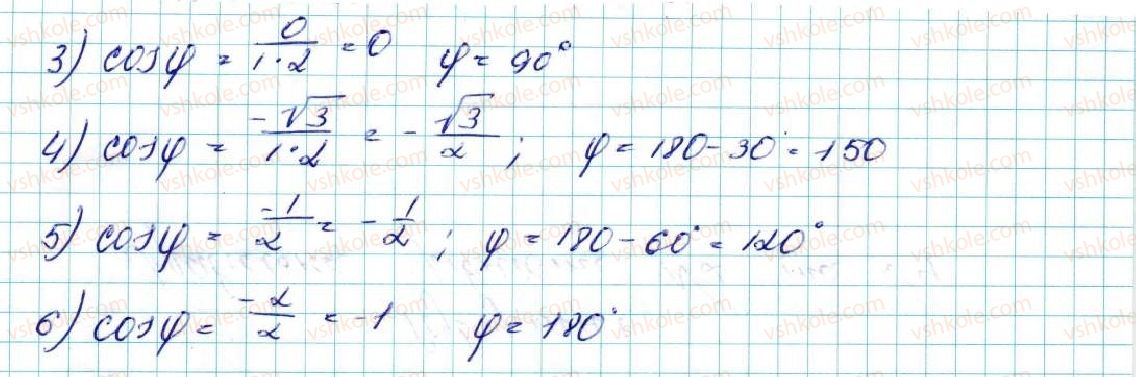 3) cosφ = 0/1·2 = 0 φ = 90°
4) cosφ = -√3/1·2 = -√3/2 ; φ = 180-30° = 150
5) cosφ = -1/2 = -1/2 ; φ = 180-60° = 120°
6) cosφ = -2/2 = -1 φ = 180°